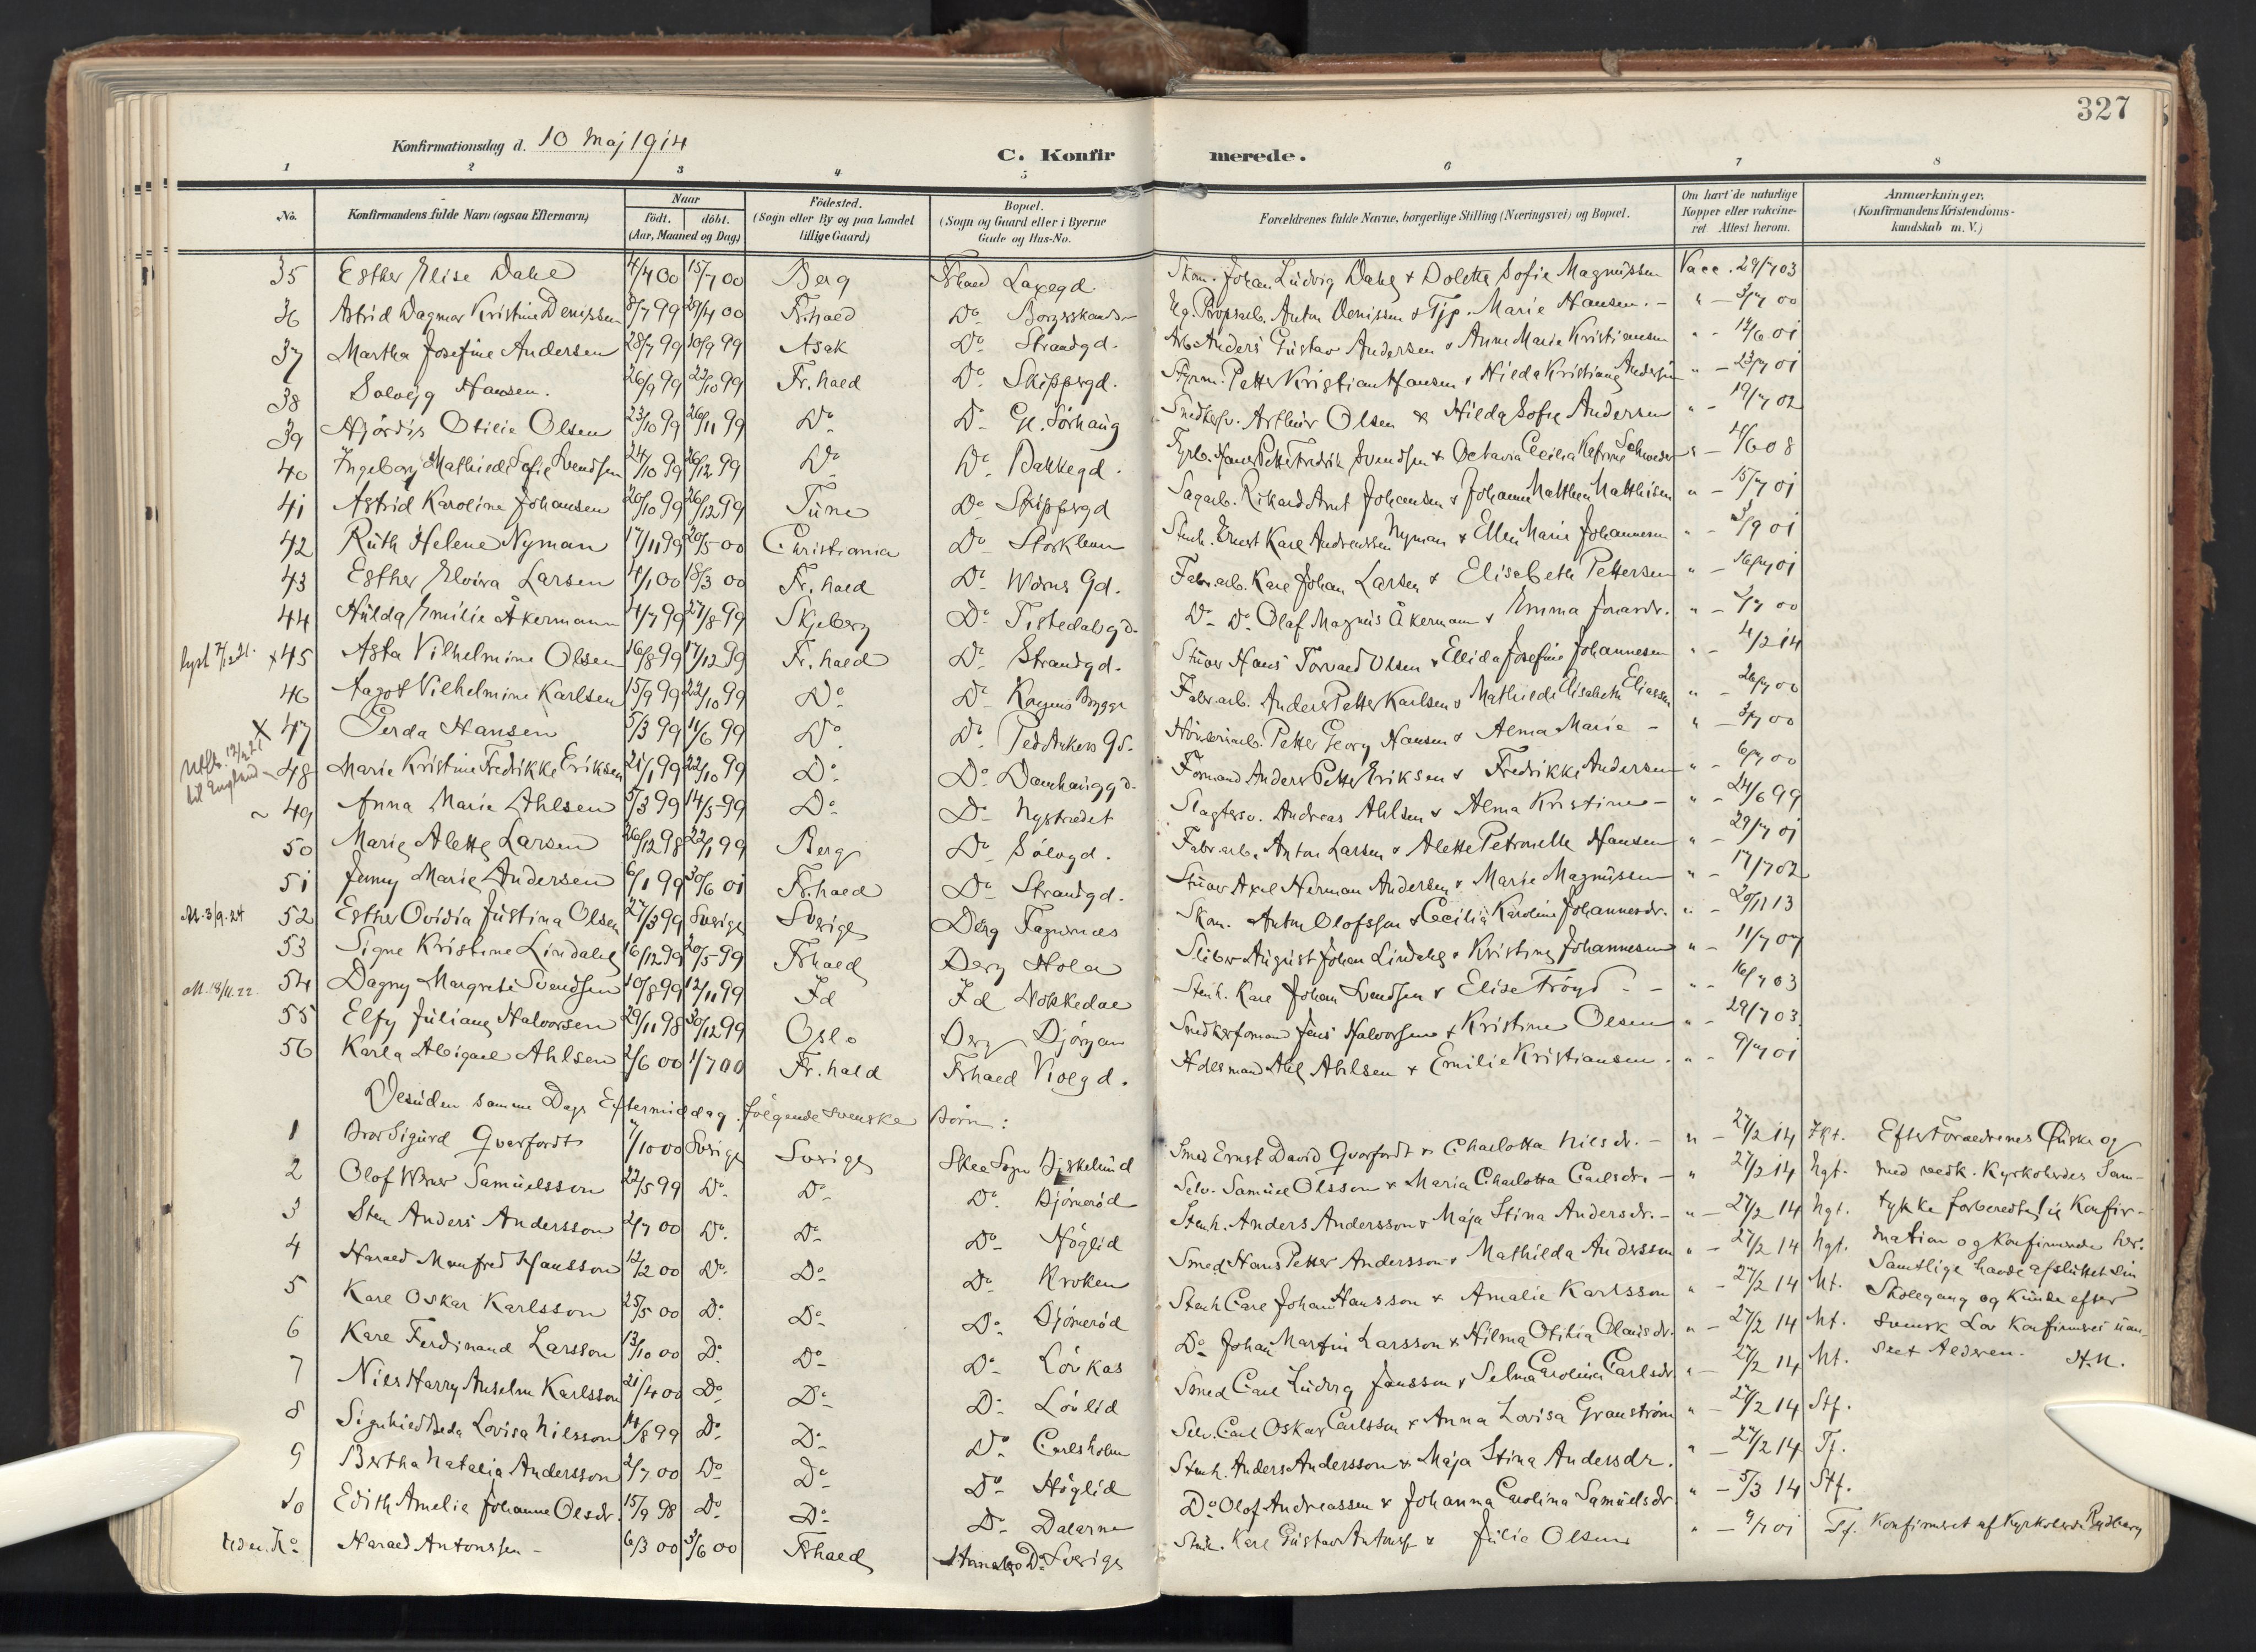 327
Konfirmationsdag d. 10 Maj 1914
C. Konfirmerede.
1 2 3 4 5 6 7 8
No.
Konfirmandens fulde Navn (ogsaa Efternavn)
Naar
födt. döbt.
(Aar, Maaned og Dag)
Födested.
(Sogn eller By og paa Landet
tillige Gaard)
Bopæl.
(Sogn og Gaard eller i Byerne
Gade og Hus-No.
Forældrenes fulde Navne, borgerlige Stilling (Næringsvei) og Bopæl.
Om havt de naturlige
Kopper eller vakcine-
ret Attest herom.
Anmærkninger.
(Konfirmandens Kristendoms-
kundskab m. V.)
35 Esther Elise Dahl 4/4 00 15/7 00 Berg Fhald Laxegd. Skom. Johan Ludvig Dahl & Dolette Sofie Magnussen Vacc. 29/7 03
36 Astrid Dagmar Kristine Denissen 8/7 99 29/4 00 Fr.hald Do Anton Denissen & Marie Hansen. " - 3/7 00
37 Martha Josefine Andersen 28/7 99 30/9 99 Asak Do Strandgd. Arb. Anders Gustav Andersen & Anne Marie Kristiansen " - 14/6 01
38 Solveig Hansen. 26/9 99 22/10 99 Fr. hald Do Skippergd. Styrm. Petter Kristian Hansen & Hilda Kristiane Andersen " - 23/7 01
39 Hjördis Otilie Olsen 23/10 99 26/11 99 Do Do Gl. Sörhaug Snedkersv. Arthur Olsen & Hilda Sofie Andersen " - 19/7 02
40 Ingeborg Mathilde Sofie Svendsen 24/10 99 26/12 99 Do Do Bakkegd. Fyrb. Hans Petter Fredrik Svendsen & Octavia Cecilia Schrøder " - 4/6 08
41 Astrid Karoline Johansen 20/10 99 26/12 99 Tune Do Skippergd Sagarb. Rikard Arnt Johansen & Johanne Mathea Mathisen " - 15/7 01
42 Ruth Helene Nyman 17/11 99 20/5 00 Christiania Do Storklevn Stenh. Ernst Karl Andreassen Nyman & Ellen Marie Johannesen " - 3/9 01
43 Esther Elvira Larsen 4/1 00 18/3 00 Fr. hald Do Wærns Gd. Fabr.arb. Karl Johan Larsen & Elisabeth Pettersen " - 16/7 01
44 Hulda Emilie Åkermann 4/7 99 27/8 99 Skjeberg Do Tistedalsgd. Do Do Olaf Magnus Åkermann & Emma " - 00
lyst 7/12 21. x 45 Asta Vilhelmine Olsen 16/8 99 17/12 99 Fr. hald Do Strandgd. Stuer Hans Torvald Olsen & Ellida Josefine Johannesen " - 4/2 14
46 Aagot Vilhelmine Karlsen 15/9 99 22/10 99 Do Do Brygge Fabr.arb. Anders Petter Karlsen & Mathilde Elisabeth Eliassen " - 26/7 00
x 47 Gerda Hansen 5/3 99 11/6 99 Do Do Ped Ankers Gd. Petter Georg Hansen & Alma Marie - " - 3/7 00
Utfl. 12/2 21 til England - 48 Marie Kristine Fredrikke Eriksen 21/1 99 22/10 99 Do Do Damhauggd. Formand Anders Petter Eriksen & Fredrikke Andersen " - 6/7 00
~ 49 Anna Marie Ahlsen 5/3 99 14/5 99 Do Do Nystrædet Slagtersv. Andreas Ahlsen & Alma Kristine - " - 24/6 99
50 Marie Alette Larsen 26/12 98 22/1 99 Berg Do Sölvgd. Fabr.arb. Anton Larsen & Alette Petronelle Hansen " - 29/7 01
51 Jenny Marie Andersen 6/1 99 30/6 01 Fr.hald Do Strandgd. Stuer Axel Herman Andersen & Marie Magnussen " - 17/7 02
M. 3/9. 24 52 Esther Ovidia Justina Olsen 27/3 99 Sverige Sverige Berg Fagernæs Skom. Anton Olofsson & Cecilia Karoline Johannesdr. " - 20/11 13
53 Signe Kristine Lindahl 16/12 99 20/5 99 Frhald Berg Hola Sliber August Johan Lindahl & Kristine Johannesen " - 11/7 07
M. 18/11. 22. 54 Dagny Margrete Svendsen 10/8 99 12/11 99 Id Id Nokkedal Stenh. Karl Johan Svendsen & Elise Fröyd - " - 16/7 03
55 Elfy Juliane Halvorsen 29/11 98 30/12 99 Oslo Berg Björgan Snedkerformand Jens Halvorsen & Kristine Olsen " - 29/7 03.
56 Karla Abigael Ahlsen 2/6 00 1/7 00 Fr. hald Frhald Violgd. Ahlsen & Emilie Kristiansen. " - 9/7 01
Desuden samme Dags Eftermiddag følgende svenske Børn:
1 Bror Sigurd Qvarfordt 7/10 00 Sverige Sverige Skee Sogn Smed Ernst David Qvarfordt & Charlotta Nilsdr. - " - 27/2 14 Efter Forældrenes Ønske og
2 Olof Werner Samuelsson 22/5 99 Do Do Do Björneröd Selv. Samuel Olsson & Maria Charlotta Carlsdr. - " 27/2 14 Ngt. med vedk. Kyrkoherdes Sam-
3 Sten Anders Andersson 2/7 00 Do Do Do Höglid Stenh. Anders Andersson & Maja Stina Andersdr. - " - 27/2 14 Ngt. tykke forberedt til Konfir-
4 Harald Manfred Hansson 12/2 00 Do Do Do Kroken Smed Hans Petter Andersson & Mathilda Andersson " - 27/2 14 Ngt. mation og konfirmerede her.
5 Karl Oskar Karlsson 25/5 00 Do Do Do Björneröd Stenh Carl Johan Hansson & Amalie Karlsson " - 27/2 14 Mt. Samtlige havde afsluttet sin Skolegang og kunde efter
6 Karl Ferdinand Larsson 13/10 00 Do Do Do Lövkas Do Johan Martin Larsson & Hilma Otilia Olausdr. " - 27/2 14 Mt. svensk Lov konfirmeres uan-
7 Nils Harry Anselm Karlsson 21/4 00 Do Do Do Lövlid Smed Carl Ludvig Jansson & Selma Carolina Carlsdr. " - 27/2 14 Mt. seet Alderen. H.N.
8 Signhild Beda Lovisa Nilsson 14/8 99 Do Do Do Carlsholm Selv. Carl Oskar Carlsson & Anna Lovisa Granström " - 27/2 14 Stf.
9 Bertha Natalia Andersson 2/7 00 Do Do Do Höglid Stenh. Anders Andersson & Maja Stina Andersdr. " - 27/2 14 Tf.
10 Edith Amelie Johanne Olsdr. 15/9 98 Do Do Do Dalarne Do Olof Andreassen & Johanna Carolina Samuelsdr. " - 5/3 14 Stf.
uden No Harald Antonssen - 6/3 00 3/6 00 Frhald Do Sverige Stenh. Karl Gustav Antonss. & Julia Olsen " - 9/7 01 Tf. Konfirmeret af Kyrkoherde Rydberg